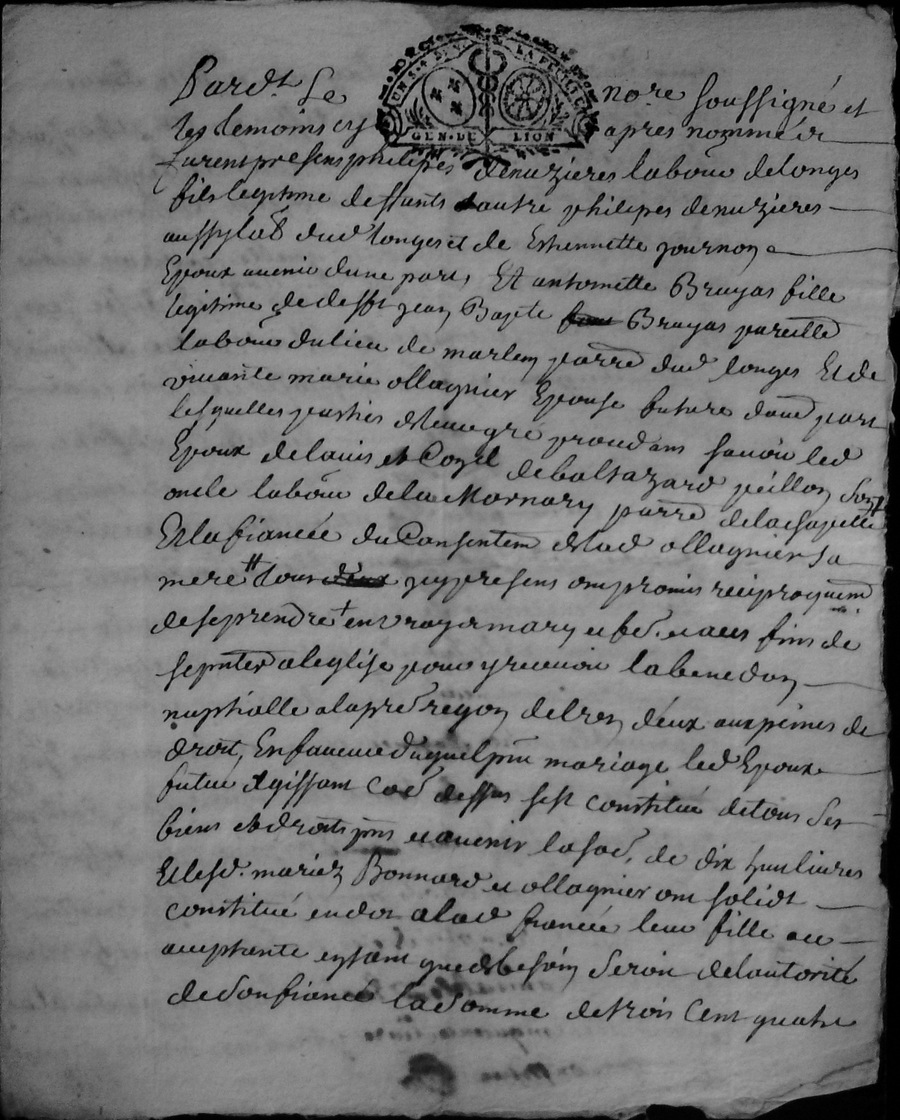 UN S. 4 DEN. LA FEUILLE
GEN. DE LION
Pard.t Le no.re soussigné et
les temoins cy apres nommés
furent presens philipes denuzieres labou.r de longes
fils legitime de deffunts autre philipes denuzieres
aussy lab. dud. longes et de Ethiennette journon
Epoux avenir dune part, Et antoinette Brayas fille
legitime de defft jean Bapte Brayas pareillem
labour du lieu de marlin parre dud longes Et de
vivante marie ollagnier Epouse future daud part
lesquelles parties de leur gré procedans savoir led
Epoux de lavis et Conseil de baltazard peillon son
oncle labour de la Mornary parre de la chapelle
Et la fiancée du Consentem de lad ollagnier sa
mere # tous jcy presens ont promis reciproquem
de se prendre + en vray mary et fe. et aux fins de
se pnter a leglise pour y recevoir la benedon
nuptialle a la pre reqon de lren deux aux peines de
droit, En faveur duquel pnt mariage led Epoux
futur agissant Coe dessus sest constitué de tous ses
biens et droits pns et avenir la soe. de dix huit livres
Et lesd. mariez Bonnard et ollagnier ont solidt
constitué en dot a lad fiancée leur fille ac
acceptante entant que de besoin seroit de lautorité
de son fiancé la somme de trois Cent quatre